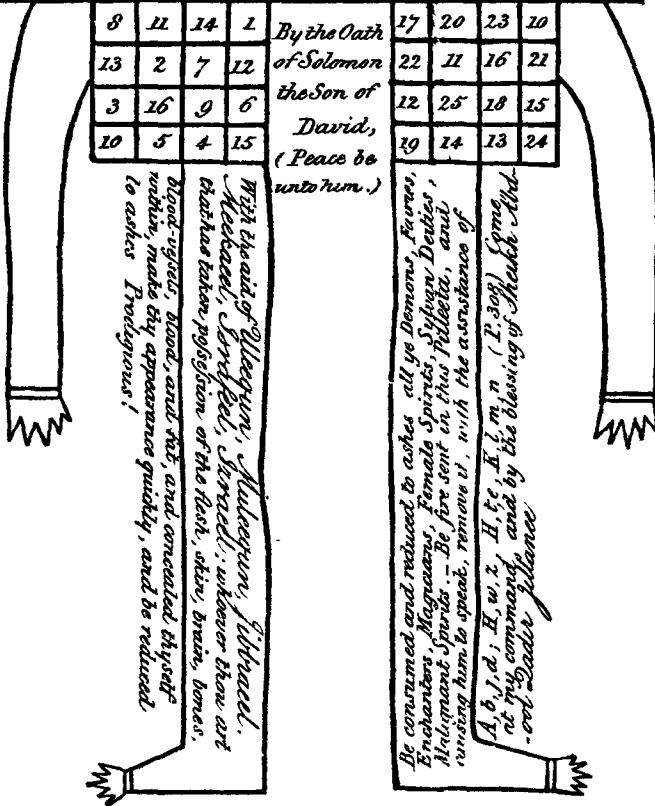 8 11 14 1
13 2 7 12
3 16 9 6
10 5 4 15
By the Oath
of Solomon
the Son of
David,
(Peace be
unto him.)
17 20 23 10
22 11 16 21
12 25 18 15
19 14 13 24
With the aid of Uleequn, Muleequn, Jibraeel.
Meekaeel, Israfeel, Izraeel; whoever thou art
that has taken possession of the flesh, skin, brain, bones,
blood-vessels, blood, and fat, and concealed thyself
within, make thy appearance quickly, and be reduced
to ashes Prodigious!
Be consumed and reduced to ashes all ye Demons, Furies,
Enchanters, Magicians, Female Spirits, Sylvan Deities,
Malignant Spirits. – Be fire sent in this Pulleeta, and
causing him to speak, remove it, with the assistance of
A, b, J, d; H, w, z, H, t, e, K, l, m n (P. 308) Come
at my command, and by the blessing of Sheikh Abd-
-ool Qadir Jillanee